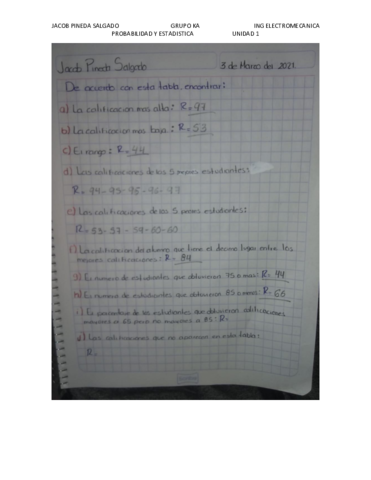 JACOB PINEDA SALGADO GRUPO KA ING ELECTROMECANICA
PROBABILIDAD Y ESTADISTICA UNIDAD 1
Jacob Pineda Salgado 3 de Marzo del 2021.
De acuerdo con esta tabla encontrar:
a) La calificacion mas alta: R= 97
b) La calificacion mas baja: R= 53
c) El rango: R= 44
d) Las calificaciones de los 5 mejores estudiantes:
R= 94-95-95-96-97
e) Las calificaciones de los 5 peores estudiantes:
R= 53-57-59-60-60
f) La calificacion del alumno que tiene el decimo lugar entre las
mejores calificaciones: R= 89
g) El numero de estudiantes que obtuvieron 75 o mas: R= 44
h) El numero de estudiantes que obtuvieron 85 o menos: R= 66
i) El porcentaje de los estudiantes que obtuvieron calificaciones
mayores a 65 pero no mayores a 85: R=
j) Las calificaciones que no aparecen en esta tabla:
R=